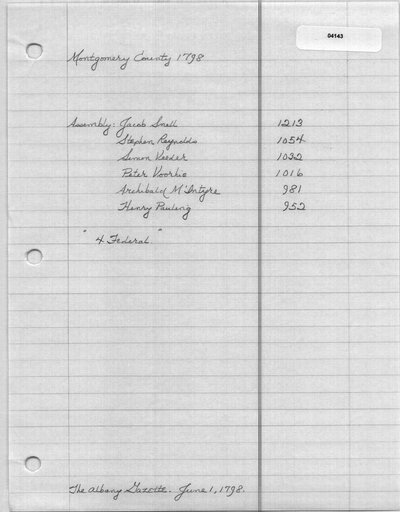 04143
Montgomery County 1798
Assembly: Jacob Snell 1213
Stephen Reynolds 1054
Simon Veeder 1032
Peter Voorhis 1016
Archibald M'Intyre 981
Henry Pauling 952
"4 Federal"
The Albany Gazette. June 1, 1798.